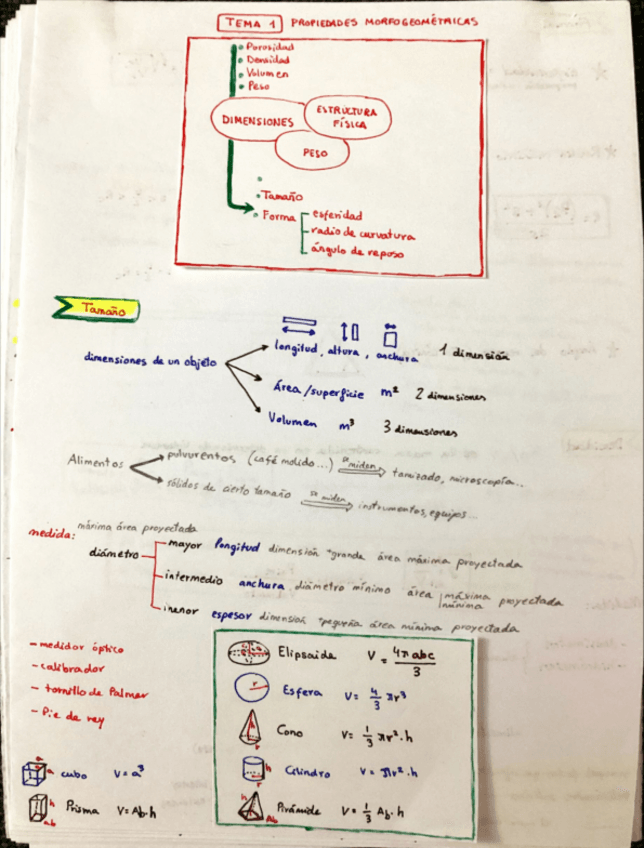 TEMA 1 PROPIEDADES MORFOGEOMÉTRICAS
• Porosidad
• Densidad
• Volumen
• Peso
DIMENSIONES
ESTRUCTURA
FÍSICA
PESO
• Tamaño
• Forma
esferidad
radio de curvatura
ángulo de reposo
Tamaño
dimensiones de un objeto
longitud, altura, anchura 1 dimensión
Área/superficie m² 2 dimensiones
Volumen m³ 3 dimensiones
Alimentos
pulvurentos (café molido...) se miden tamizado, microscopía...
sólidos de cierto tamaño se miden instrumentos, equipos...
medida: máxima área proyectada
diámetro
mayor longitud dimensión +grande área máxima proyectada
intermedio anchura diámetro mínimo área máxima mínima proyectada
menor espesor dimensión +pequeña área mínima proyectada
- medidor óptico
- calibrador
- tornillo de Palmer
- Pie de rey
Elipsoide V = 4π abc / 3
r Esfera V = 4/3 πr³
h r Cono V = 1/3 πr². h
h r Cilindro V = πr². h
h Ab Pirámide V = 1/3 Ab. h
a a cubo V = a³
h ab Prisma V = Ab. h